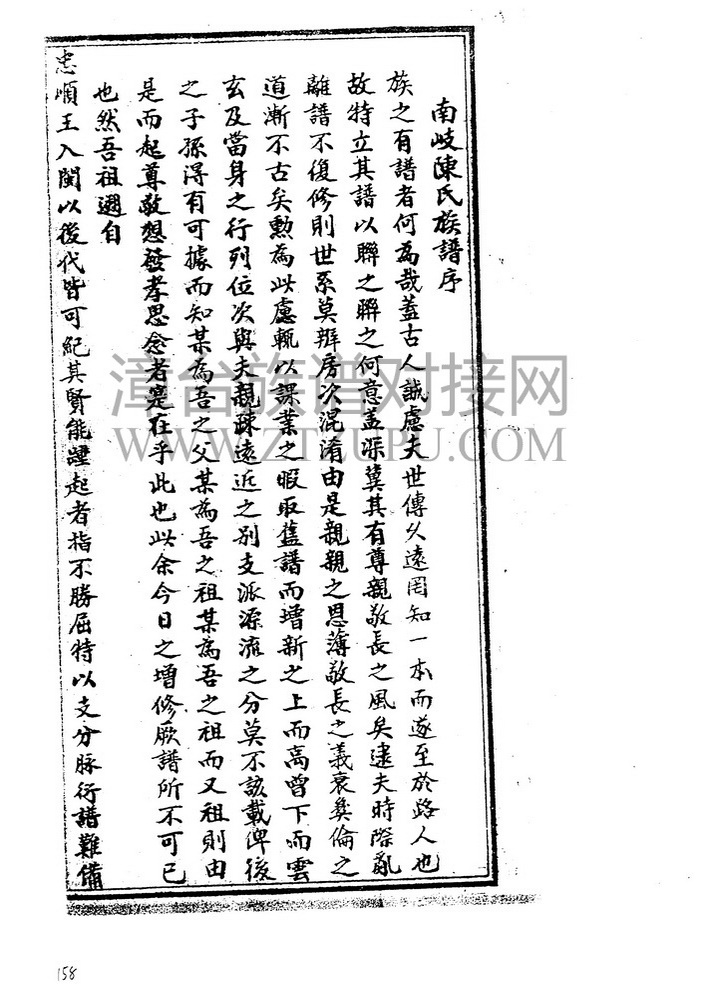 南岐陳氏族譜序
族之有譜者何為哉蓋古人誠慮夫世傳久遠罔知一本而遂至於路人也
故特立其譜以聯之聯之何意蓋深冀其有尊親敬長之風矣逮夫時際亂
離譜不復修則世系莫辨房次混淆由是親親之恩薄敬長之義衰彝倫之
道漸不古矣勲為此慮輒以課業之暇取舊譜而增新之上而高曾下而雲
玄及當身之行列位次與夫親疎遠近之別支派源流之分莫不該載俾後
之子孫得有可據而知某為吾之父某為吾之祖某為吾之祖而又祖則由
是而起尊敬想發孝思念者寔在乎此也此余今日之增修厥譜所不可已
也然吾祖遡自
忠順王入閩以後代皆可紀其賢能踵起者指不勝屈特以支分脉衍譜難備
漳台族谱对接网
WWW.ZTZUPU.COM
158